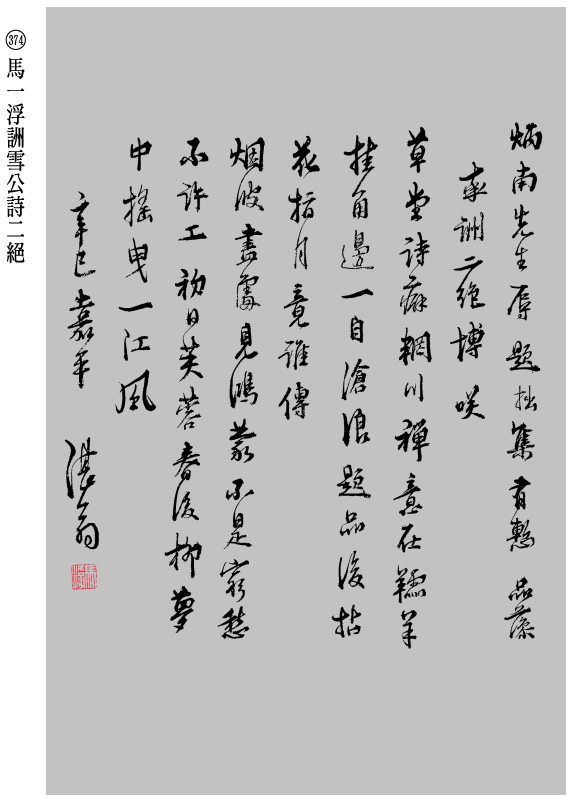 374
馬一浮詶雪公詩二絕
炳南先生辱題拙集有慙品藻
奉詶二絕博咲
草堂詩癖輞川禪意在羚羊
挂角邊一自滄浪題品後拈
花指月竟誰傳
烟波盡處見鴻蒙不是窮愁
不許工初日芙蓉春後柳夢
中搖曳一江風
辛巳嘉平
湛翁